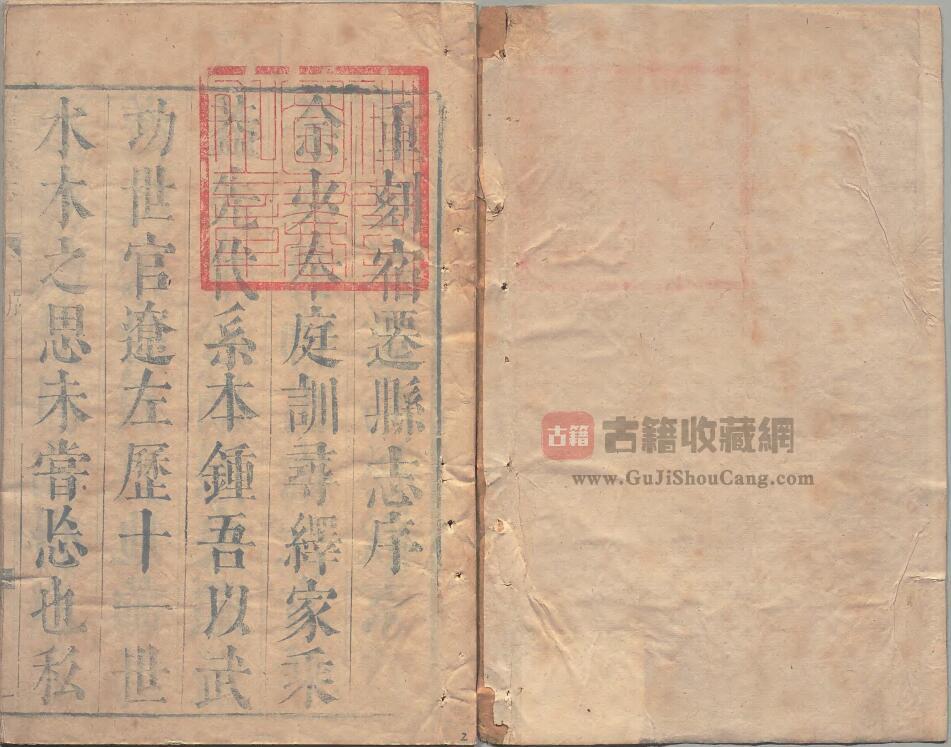 重刻宿遷縣志序
余夾奉庭訓尋繹家乘
益先代系本鍾吾以武
功世官遼左歷十一世
水木之思未嘗忘也私
2
古籍 古籍收藏網
www.GuJiShouCang.com